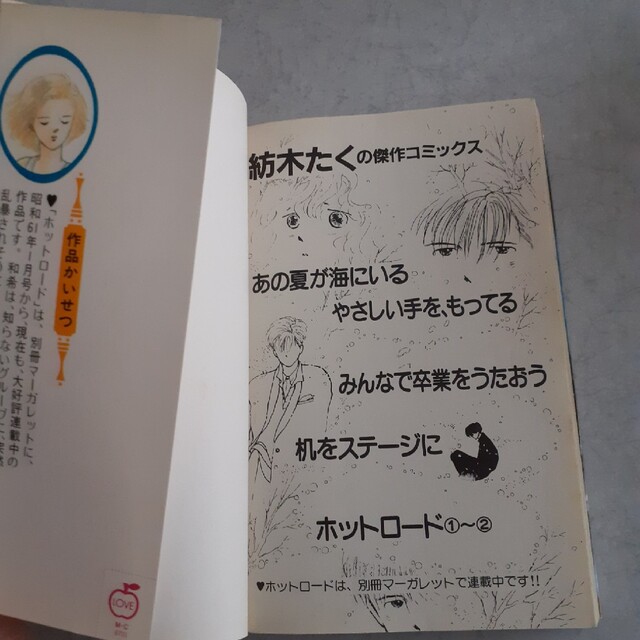 紡木たくの傑作コミックス
あの夏が海にいる
やさしい手を、もってる
みんなで卒業をうたおう
机をステージに
ホットロード①〜②
♥ホットロードは、別冊マーガレットで連載中です!!
作品かいせつ
♥「ホットロード」は、別冊マーガレットに、
昭和61年1月号から、現在も、大好評連載中の
作品です。和希は、知らないグループに、
乱暴され
LOVE